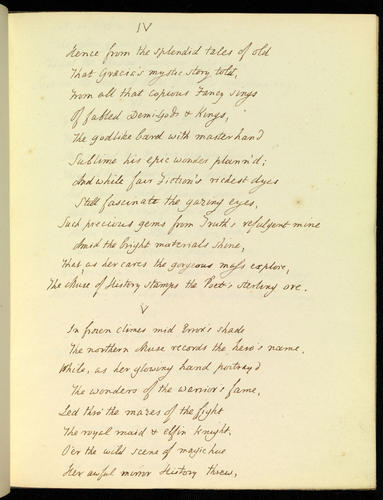 IV
Hence from the splendid tales of old
That Græcia's mystic story told,
From all that copious Fancy sings
Of fabled Demi-Gods & Kings,
The godlike bard with master hand
Sublime his epic wonder plann'd;
And while fair Fiction's richest dyes
Still fascinate the gazing eyes,
Such precious gems from Truth's refulgent mine
Amid the bright materials shine,
That, as her cares the gorgeous mass explore,
The Muse of History stamps the Poet's sterling ore.
V
In frozen climes mid Error's shade
The northern Muse records the hero's name,
While, as her glowing hand portray'd
The wonders of the warrior's fame,
Led thro' the mazes of the fight
The royal maid & elfin knight,
O'er the wild scene of magic hue
Her awful mirror History threw,